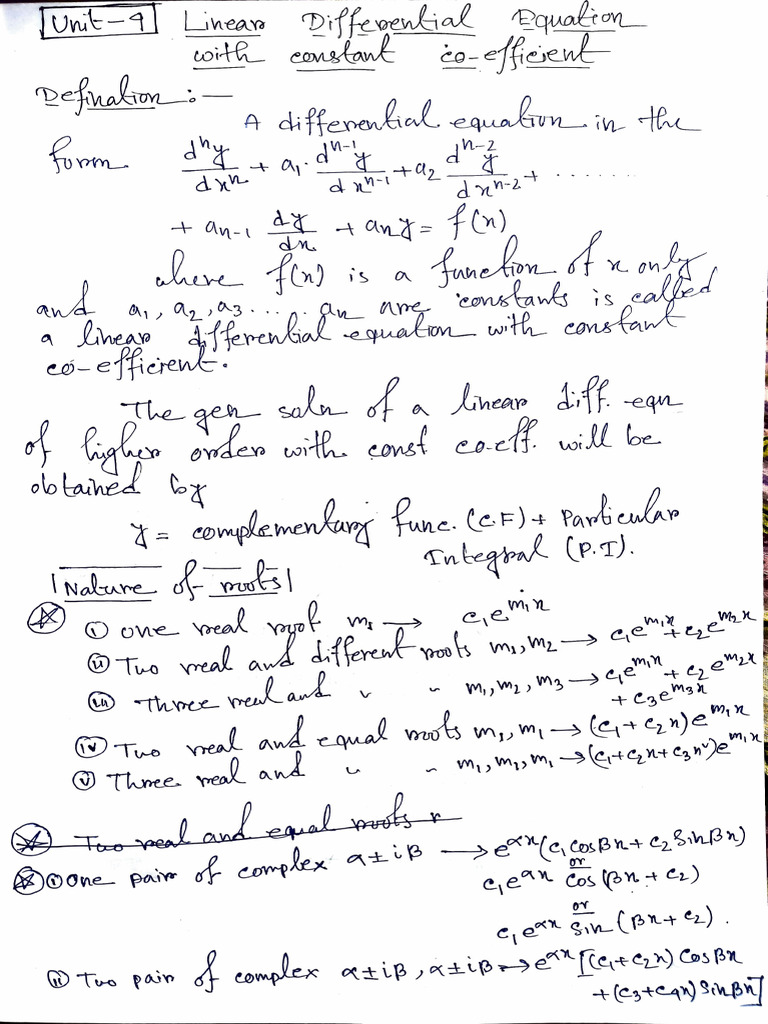 Unit-4 Linear Differential Equation
with constant co-efficient
Defination :—
A differential equation in the
form d^n y/dx^n + a₁. d^n-1 y/dx^n-1 + a₂ d^n-2 y/dx^n-2 + .......
+ a_n-1 dy/dx + a_n y = f(x)
where f(x) is a function of x only
and a₁, a₂, a₃.... a_n are constants is called
a linear differential equation with constant
co-efficient.
The gen soln of a linear diff. eqn
of higher order with const co-eff. will be
obtained by
y = complementary func. (C.F) + Particular
Integral (P.I).
Nature of roots
(i) one real root m₁ → c₁e^m₁x
(ii) Two real and different roots m₁, m₂ → c₁e^m₁x + c₂e^m₂x
(iii) Three real and " " m₁, m₂, m₃ → c₁e^m₁x + c₂e^m₂x
+ c₃e^m₃x
(iv) Two real and equal roots m₁, m₁ → (c₁+c₂x)e^m₁x
(v) Three real and " " m₁, m₁, m₁ → (c₁+c₂x+c₃x²)e^m₁x
Two real and equal roots r
(i) One pair of complex α±iβ → e^αx (c₁cosβx + c₂ Sinβx)
or
c₁e^αx Cos (βx + c₂)
or
c₁e^αx Sin (βx + c₂).
(ii) Two pair of complex α±iβ, α±iβ → e^αx [(c₁+c₂x) Cosβx
+ (c₃+c₄x) Sinβx]